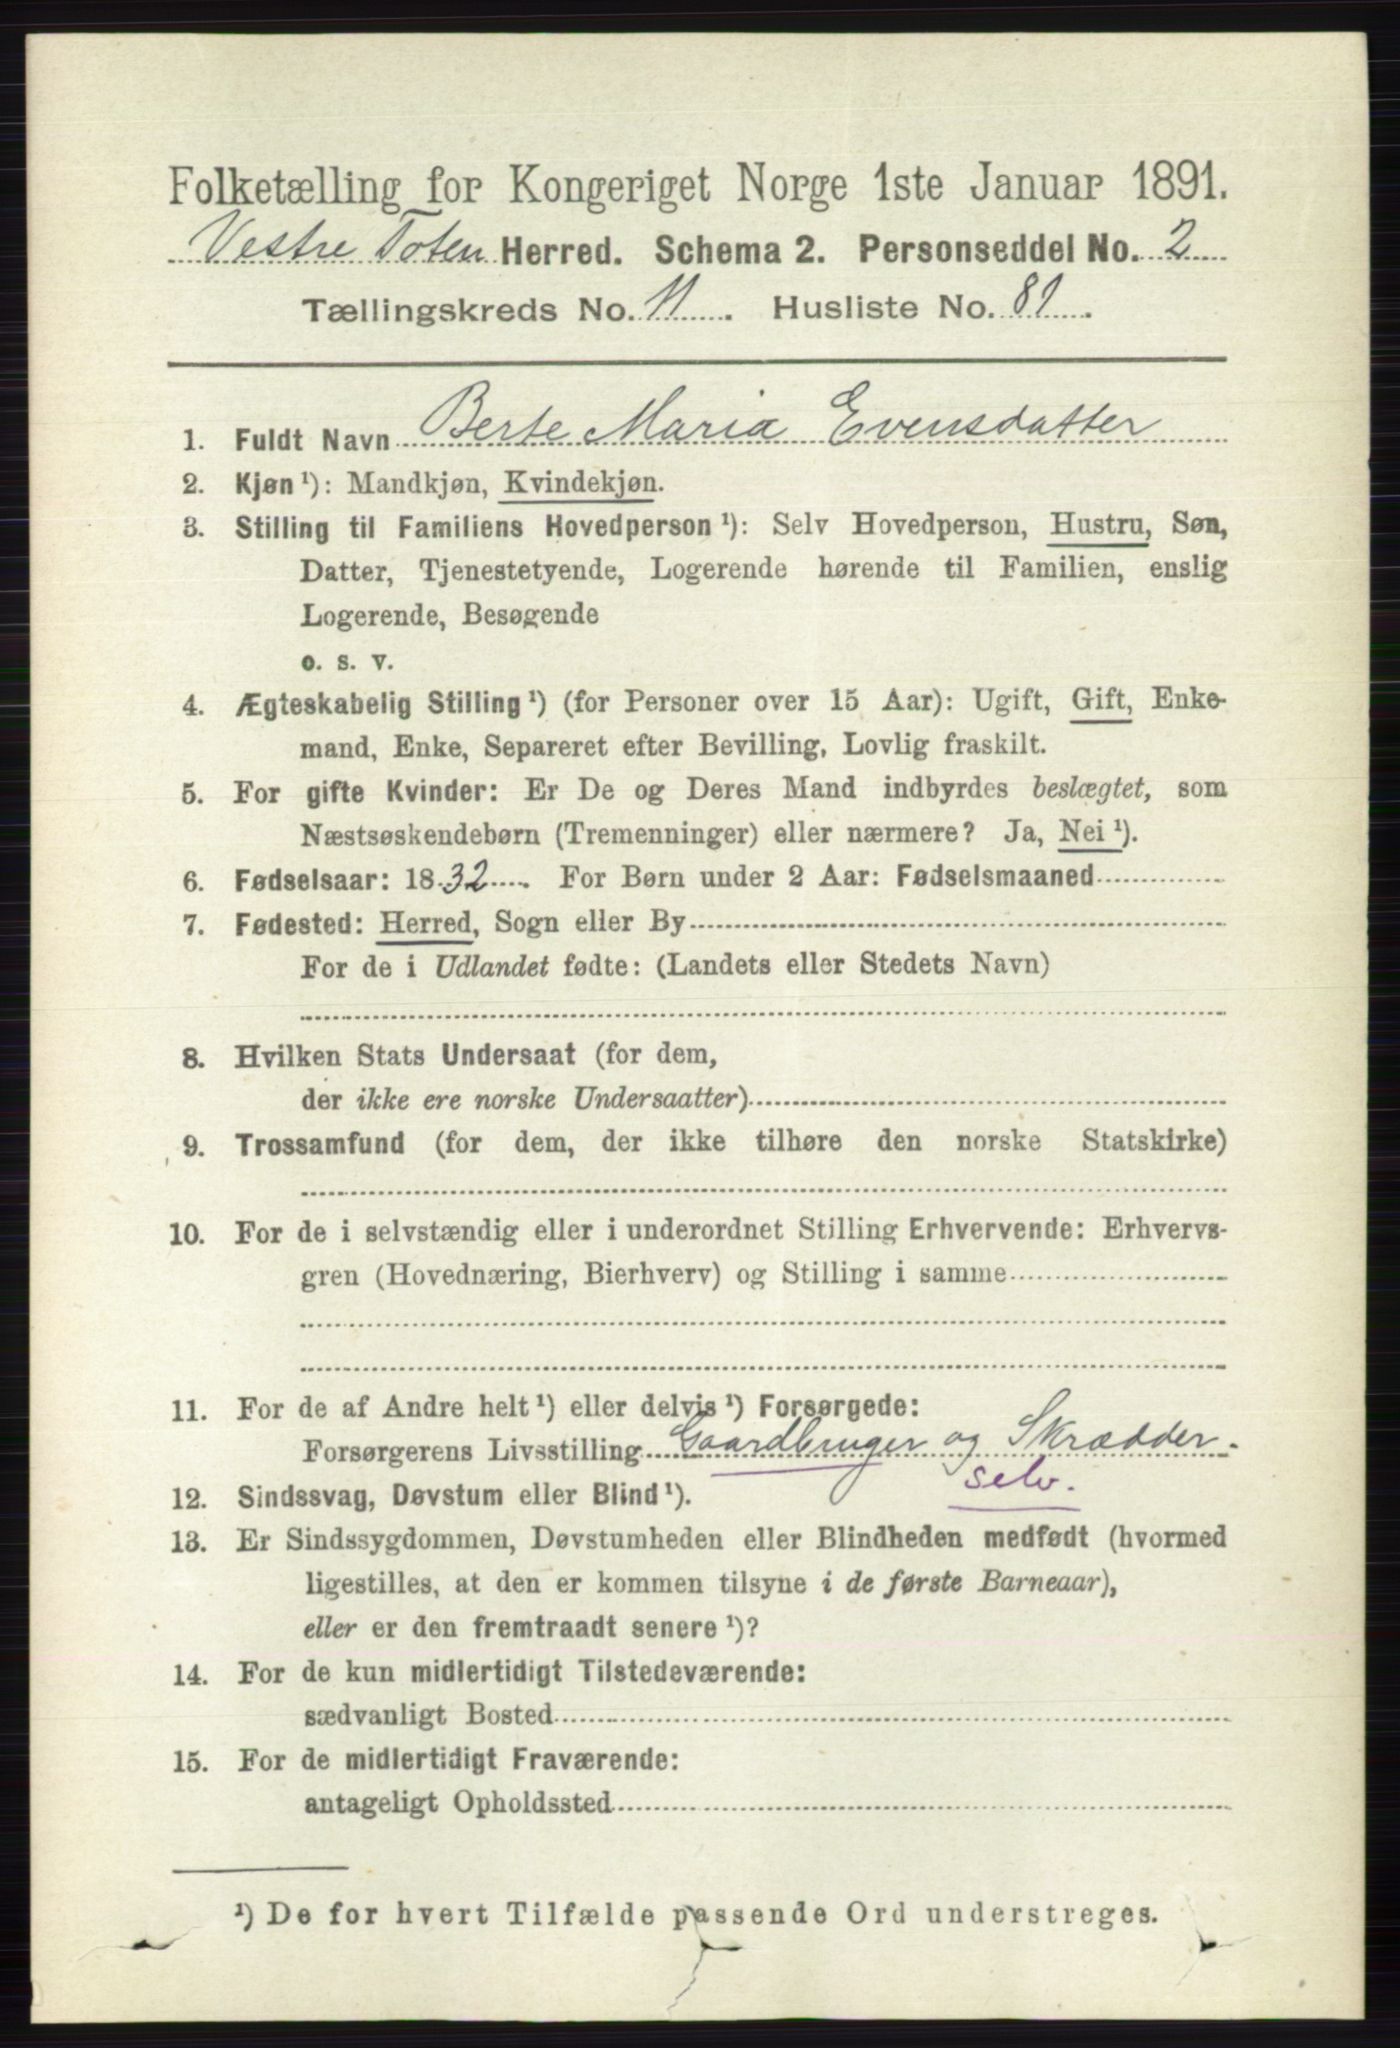 Folketælling for Kongeriget Norge 1ste Januar 1891.
Vestre Toten Herred. Schema 2. Personseddel No. 2
Tællingskreds No. 11. Husliste No. 81.
1. Fuldt Navn Berte Maria Evensdatter
2. Kjøn¹): Mandkjøn, Kvindekjøn.
3. Stilling til Familiens Hovedperson¹): Selv Hovedperson, Hustru, Søn,
Datter, Tjenestetyende, Logerende hørende til Familien, enslig
Logerende, Besøgende
o. s. v.
4. Ægteskabelig Stilling¹) (for Personer over 15 Aar): Ugift, Gift, Enke-
mand, Enke, Separeret efter Bevilling, Lovlig fraskilt.
5. For gifte Kvinder: Er De og Deres Mand indbyrdes beslægtet, som
Næstsøskendebørn (Tremenninger) eller nærmere? Ja, Nei¹).
6. Fødselsaar: 1832. For Børn under 2 Aar: Fødselsmaaned
7. Fødested: Herred, Sogn eller By
For de i Udlandet fødte: (Landets eller Stedets Navn)
8. Hvilken Stats Undersaat (for dem,
der ikke ere norske Undersaatter)
9. Trossamfund (for dem, der ikke tilhøre den norske Statskirke)
10. For de i selvstændig eller i underordnet Stilling Erhvervende: Erhvervs-
gren (Hovednæring, Bierhverv) og Stilling i samme
11. For de af Andre helt¹) eller delvis¹) Forsørgede:
Forsørgerens Livsstilling Gaardbruger og Skrædder.
selv.
12. Sindssvag, Døvstum eller Blind¹).
13. Er Sindssygdommen, Døvstumheden eller Blindheden medfødt (hvormed
ligestilles, at den er kommen tilsyne i de første Barneaar),
eller er den fremtraadt senere¹)?
14. For de kun midlertidigt Tilstedeværende:
sædvanligt Bosted
15. For de midlertidigt Fraværende:
antageligt Opholdssted
¹) De for hvert Tilfælde passende Ord understreges.